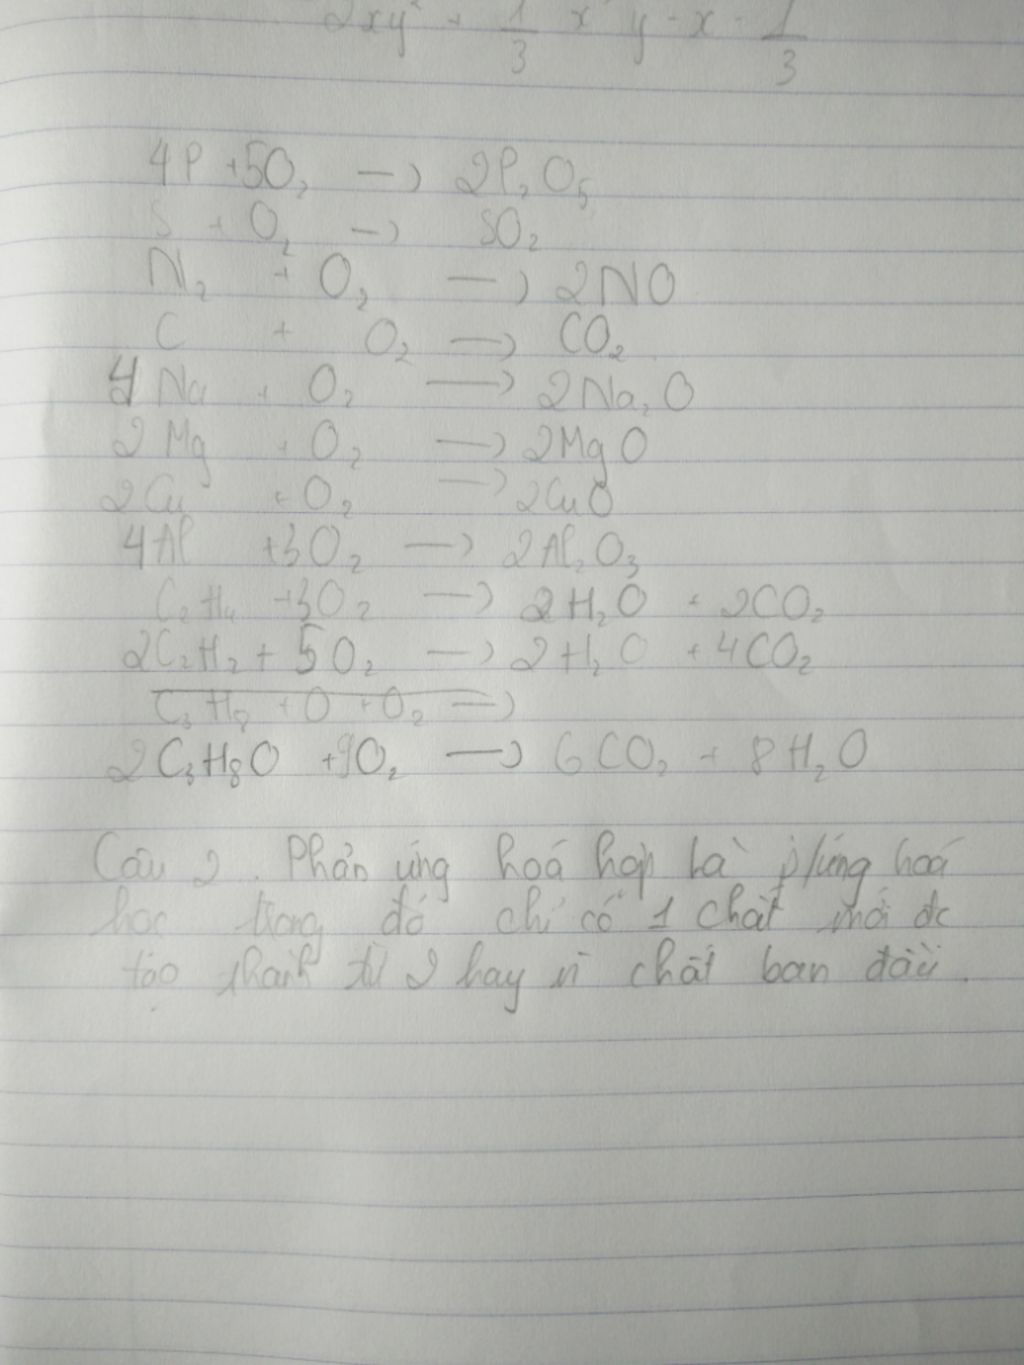 2xy² + 1/3 x y - x - 1/3
4P + 5O₂ —> 2P₂O₅
S + O₂ —> SO₂
N₂ + O₂ —> 2NO
C + O₂ —> CO₂
4Na + O₂ —> 2Na₂O
2Mg + O₂ —> 2MgO
2Cu + O₂ —> 2CuO
4Al + 3O₂ —> 2Al₂O₃
C₂H₄ + 3O₂ —> 2H₂O + 2CO₂
2C₂H₂ + 5O₂ —> 2H₂O + 4CO₂
C₃H₈ + O + O₂ —>
2C₃H₈O + 9O₂ —> 6CO₂ + 8H₂O
Câu 2. Phản ứng hoá hợp là p/ứng hoá
học trong đó chỉ có 1 chất mới đc
tạo thành từ 2 hay n chất ban đầu.